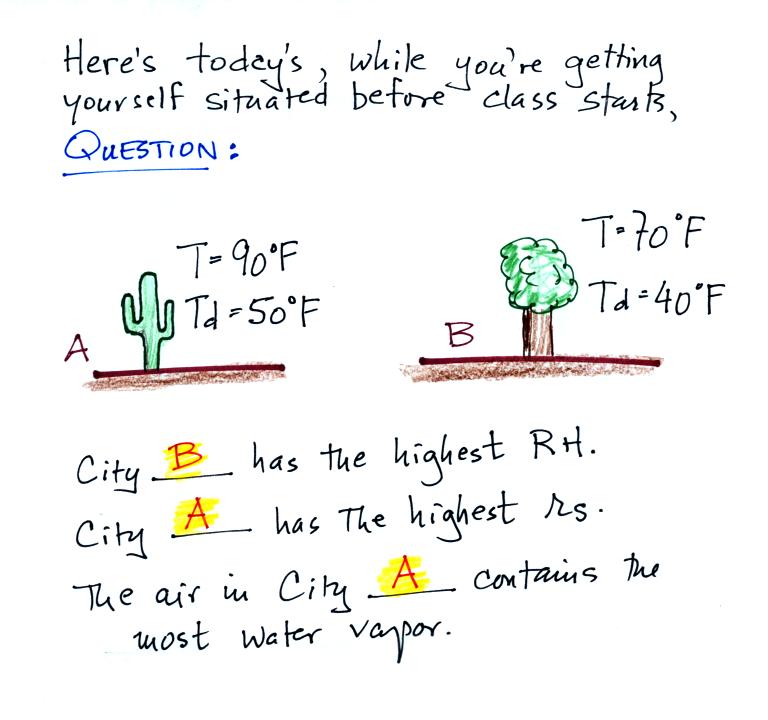 Here's today's, while you're getting
yourself situated before class starts,
QUESTION:
T=90°F
Td=50°F
A
T=70°F
Td=40°F
B
City B has the highest RH.
City A has The highest rs.
The air in City A contains the
most water vapor.